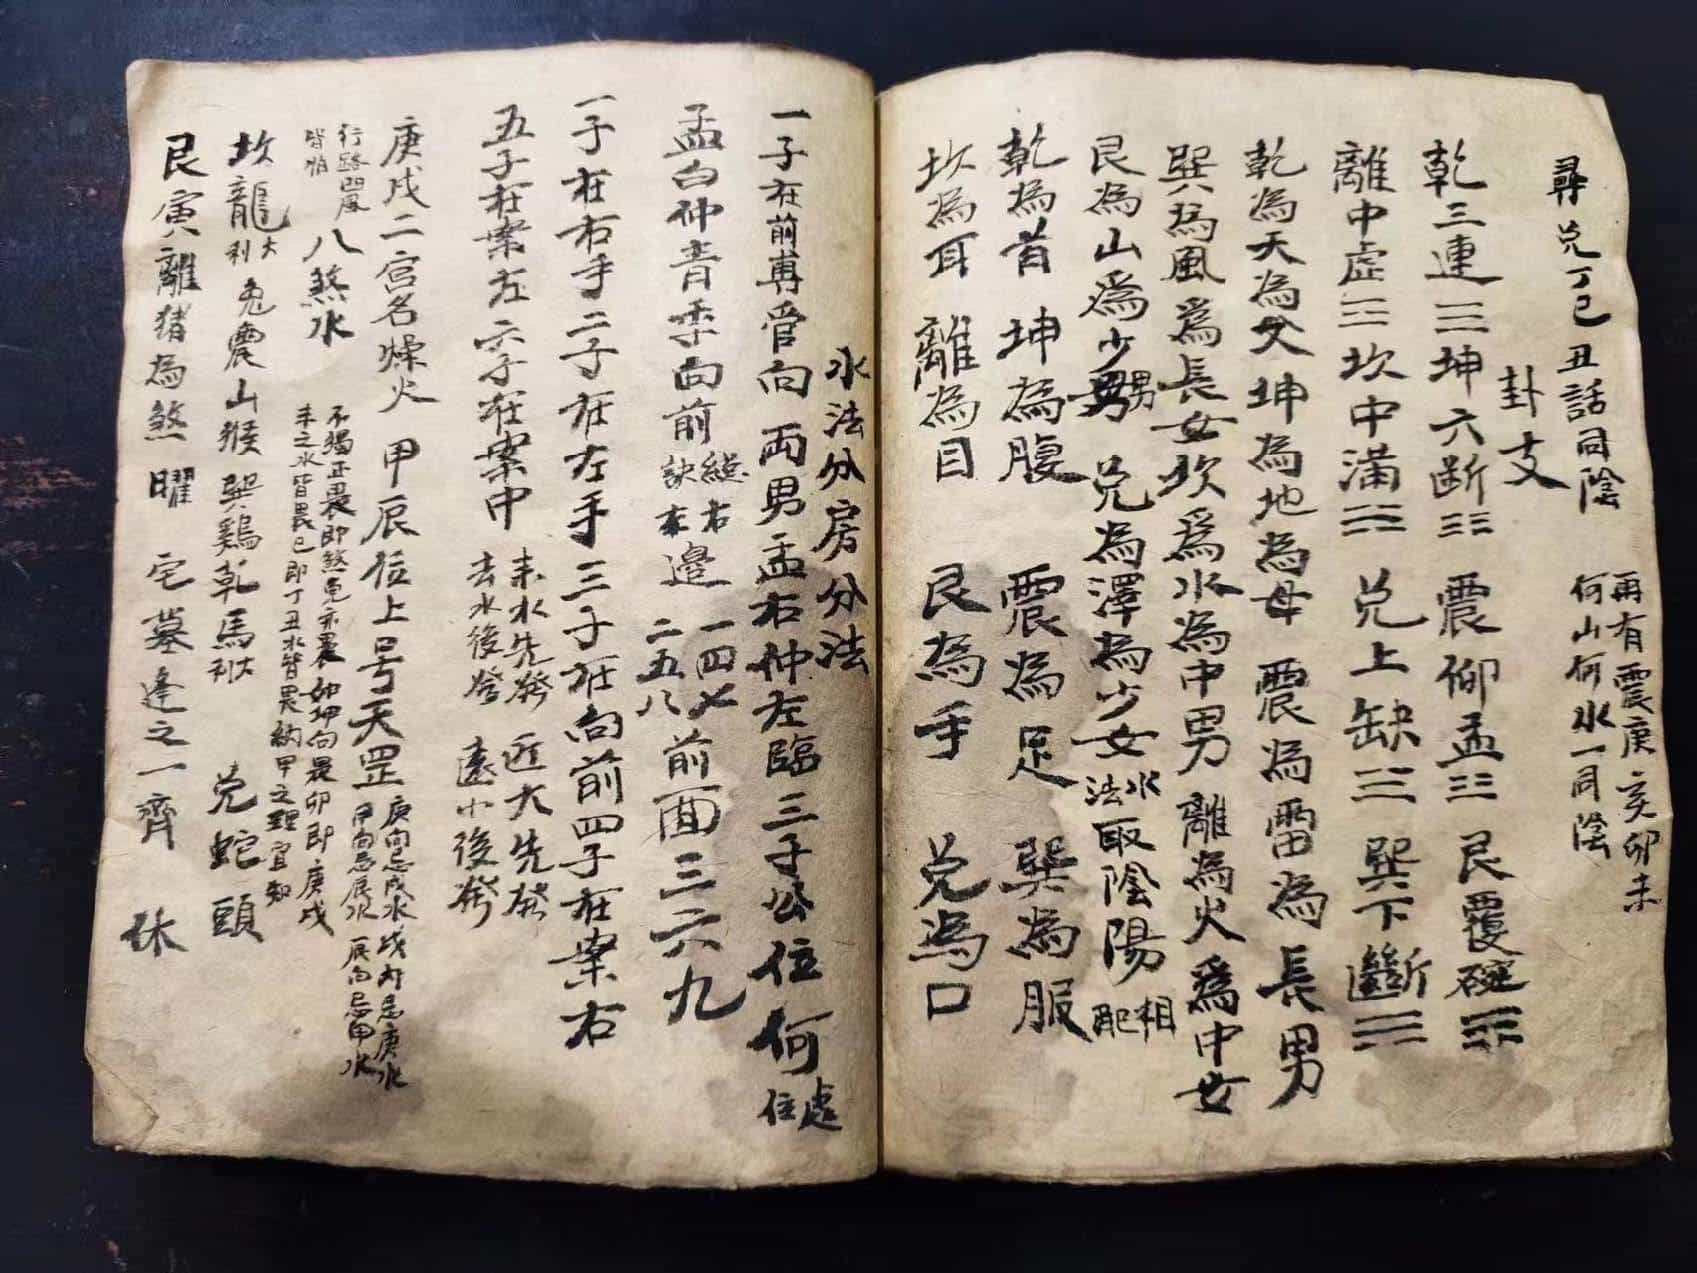 尋兑丁巳丑話同陰
再有震庚亥卯未
何山何水一同陰
卦支
乾三連☰坤六断☷震仰盂☳艮覆碗☶
離中虛☲坎中滿☵兑上缺☱巽下斷☴
乾為天為父坤為地為母震為雷為長男
巽為風為長女坎為水為中男離為火為中女
艮為山為少男兑為澤為少女水法取陰陽相配
乾為首坤為腹震為足巽為服
坎為耳離為目艮為手兑為口
水法分房分法
一子在前專管向両男孟右仲左臨三子公位何處住
孟白仲青季向前訣左右邉一四七前面三六九
二五八
一子在右手二子在左手三子在向前四子在案右
五子在案左六子在案中
来水先發近大先發
去水後發遠小後發
庚戌二宫名燥火甲辰位上号天罡
庚向忌戌水戌向忌庚水
甲向忌辰水辰向忌甲水
行路
皆怕
八煞水
不獨正畏即煞免亦畏如坤向畏卯即庚戌
未之水皆畏巳即丁丑水皆畏納甲之理宜知
坎龍大利兔震山猴巽鷄乾馬大利兑蛇頭
艮寅離猪為煞曜宅墓逢之一齊休